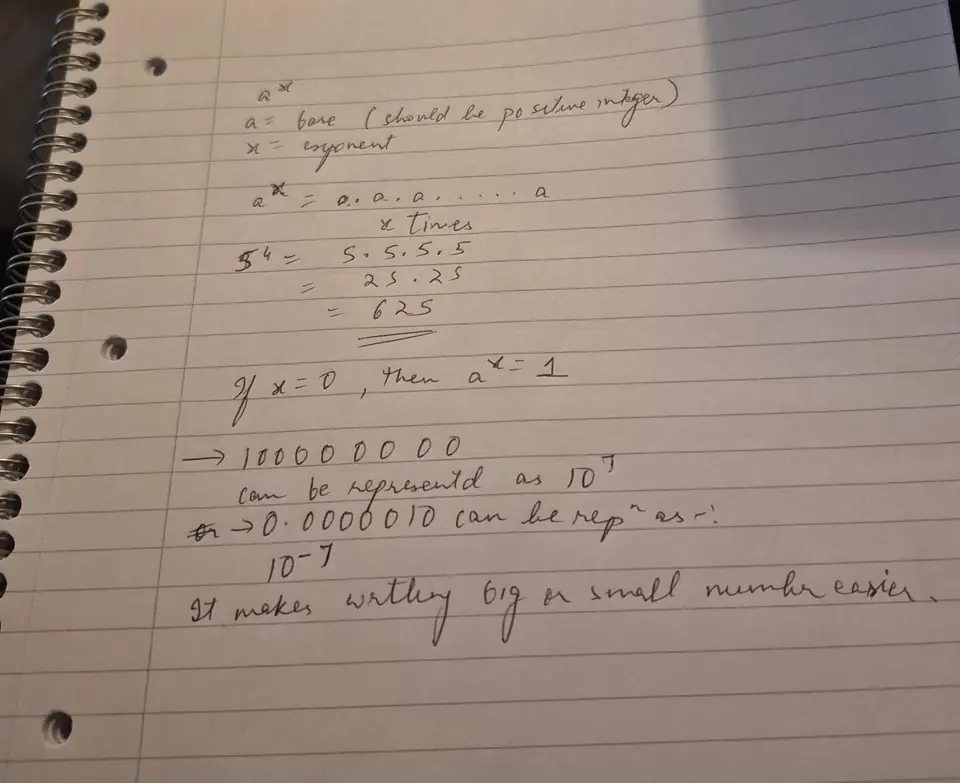 a^x
a = base (should be positive integer)
x = exponent
a^x = a. a. a. . . . . a
x Times
5^4 = 5. 5. 5. 5
= 25 . 25
= 625
If x = 0, then a^x = 1
→ 100000 0 0 0
can be representd as 10^7
→ 0.0000010 can be rep^n as -:
10^-7
It makes big or small numbr easier.